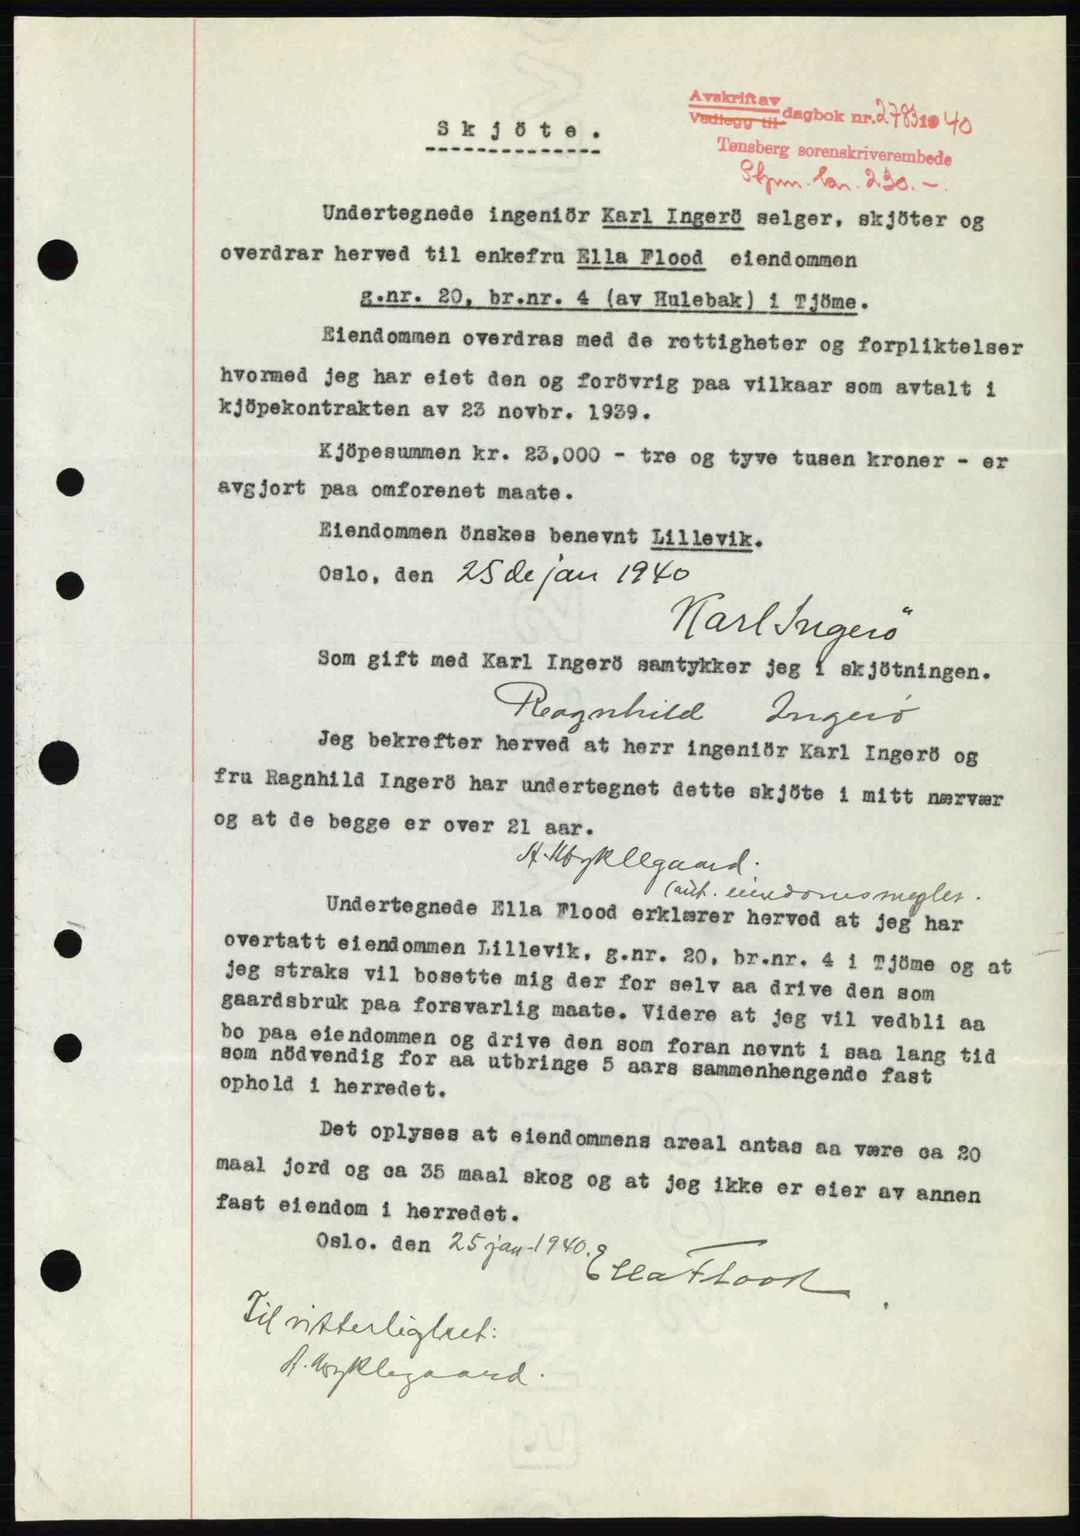 Avskrift av
Vedlegg til dagbok nr. 2783 19 40
Tønsberg sorenskriverembede
Stpm. kr. 230.-.
Skjöte.
Undertegnede ingeniör Karl Ingerö selger, skjöter og
overdrar herved til enkefru Ella Flood eiendommen
g.nr. 20, br.nr. 4 (av Hulebak) i Tjöme.
Eiendommen overdras med de rettigheter og forpliktelser
hvormed jeg har eiet den og forövrig paa vilkaar som avtalt i
kjöpekontrakten av 23 novbr. 1939.
Kjöpesummen kr. 23,000 - tre og tyve tusen kroner - er
avgjort paa omforenet maate.
Eiendommen önskes benevnt Lillevik.
Oslo, den 25 de jan 1940
Karl Ingerö
Som gift med Karl Ingerö samtykker jeg i skjötningen.
Ragnhild Ingerö
Jeg bekrefter herved at herr ingeniör Karl Ingerö og
fru Ragnhild Ingerö har undertegnet dette skjöte i mitt nærvær
og at de begge er over 21 aar.
A. Myklegaard.
(aut. eiendomsmegler.
Undertegnede Ella Flood erklærer herved at jeg har
overtatt eiendommen Lillevik, g.nr. 20, br.nr. 4 i Tjöme og at
jeg straks vil bosette mig der for selv aa drive den som
gaardsbruk paa forsvarlig maate. Videre at jeg vil vedbli aa
bo paa eiendommen og drive den som foran nevnt i saa lang tid
som nödvendig for aa utbringe 5 aars sammenhengende fast
ophold i herredet.
Det oplyses at eiendommens areal antas aa være ca 20
maal jord og ca 35 maal skog og at jeg ikke er eier av annen
fast eiendom i herredet.
Oslo. den 25 jan-1940.
Ella Flood
Til vitterlighet:
A. Myklegaard.